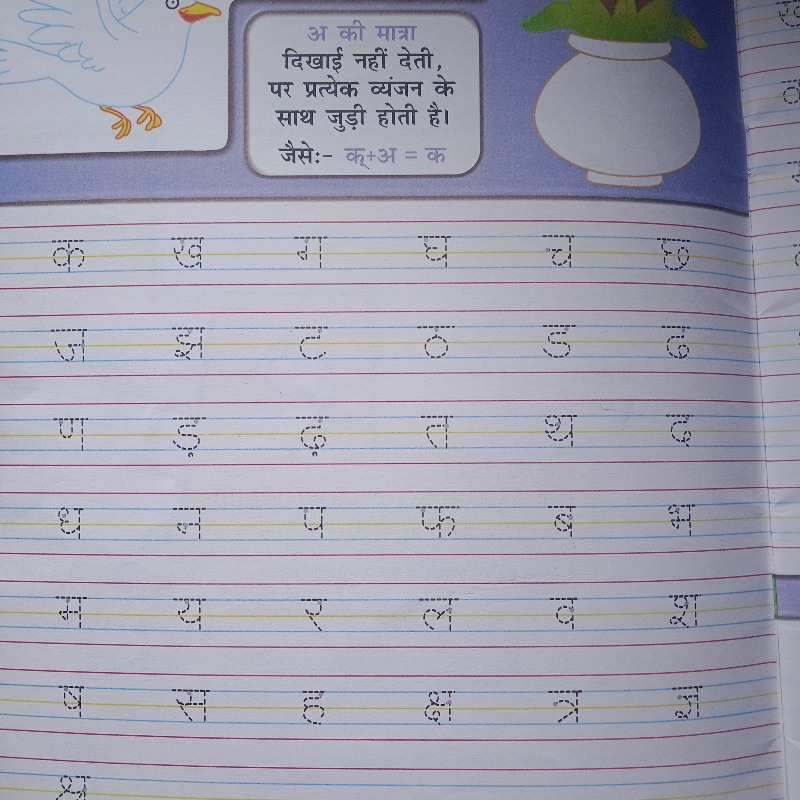 अ की मात्रा
दिखाई नहीं देती,
पर प्रत्येक व्यंजन के
साथ जुड़ी होती है।
जैसेः- क्+अ = क
क ख ग घ च छ
ज झ ट ठ ड ढ
ण ड़ ढ़ त थ द
ध न प फ ब भ
म य र ल व श
ष स ह क्ष त्र ज्ञ
श्र